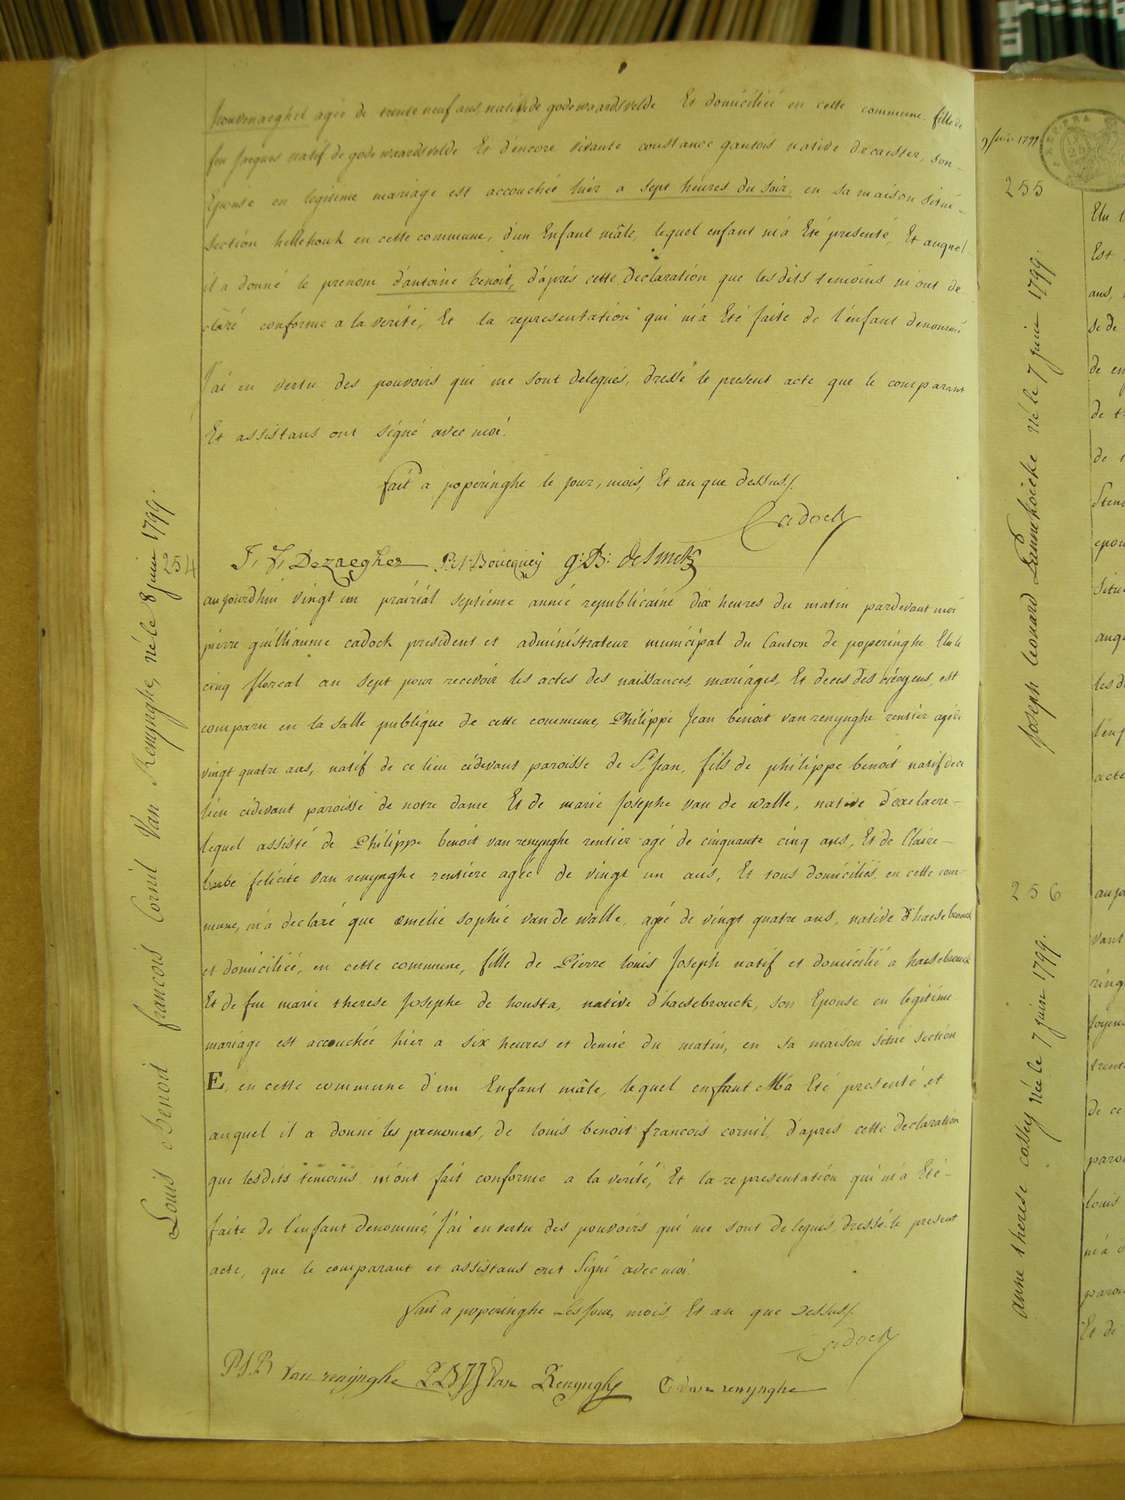 agée de trente neuf ans, native de godewaardsvelde Et domiciliée en cette commune fille de
feu natif de godewaardsvelde Et d'encore vivante constance gantois native de caister, son
Epouse en legitime mariage est accouchée hier a sept heures du soir, en sa maison situé-
Section hellehouk en cette commune, d'un Enfant mâle, lequel enfant m'á Eté presenté, Et auquel
il a donné le prenom d'antoine benoit, d'áprés cette Declaration que lesdits temoins m'ont dé
claré conforme a la verité, Et la representation qui m'a Eté faite de l'enfant denommé
J'ai en vertu des pouvoirs qui me sont delegués, dressé le present acte que le comparant
Et assistans ont signé avec moi.
Fait a poperinghe le jour, mois, Et an que dessus.
Cadock
J. F. Dezaegher P. J. Boucquey g: B: de Smet
254
aujourdhui vingt un prairial septieme année republicaine dix heures du matin pardevant moi
pierre guilliaume cadock president et administrateur municipal du Canton de poperinghe Elu le
cinq floreal an sept pour recevoir les actes des naissances, mariages, Et deces des citoyens, est
comparu en la salle publique de cette commune, Philippe Jean benoit van renynghe rentier agé de
vingt quatre ans, natif de ce lieu cidevant paroisse de St. Jean, fils de philippe benoit natif de ce
lieu cidevant paroisse de notre dame Et de marie Josephe van de walle, native d'oxelaere-
lequel assisté de Philippe benoit van renynghe rentier agé de cinquante cinq ans, Et de Claire-
barbe felicité van renynghe rentiere agée de vingt un ans, Et tous domiciliés en cette com-
mune, m'á declaré que amelie sophie van de walle, agée de vingt quatre ans, native d'haesebrouck
et domiciliée, en cette commune, fille de Pierre louis Joseph natif et domicilié a haesebrouck
Et de feu marie therese Josephe de housta, native d'haesebrouck, son Epouse en legitime
mariage est accouchée hier a six heures et demie du matin, en sa maison situé section
E, en cette commune d'un Enfant mâle, lequel enfant M'a Eté presenté et
auquel il a donné les prenoms, de louis benoit francois cornil, d'apres cette declaration
que lesdits temoins m'ont fait conforme a la verité, Et la representation qui m'a Eté-
faite de l'enfant denommé, J'ai en vertu des pouvoirs qui me sont delegués, dressé le present
acte, que le comparant et assistans ont Signé avec moi.
Fait a poperinghe Les jour, mois, Et an que Dessus.
Cadock
P J B Van renynghe Van Renynghe van renynghe
Louis Benoit francois Cornil Van Renynghe, né le 8 juin 1799.
9 juin 1799
255
Joseph leonard né le 7 juin 1799.
256
anne therese née le 7 juin 1799.
Elu
Est
ans,
de
de t
de
epou
Situé
auq
les d
acte
vant
de ce
paroi
louis
m'á
paroi
Et de